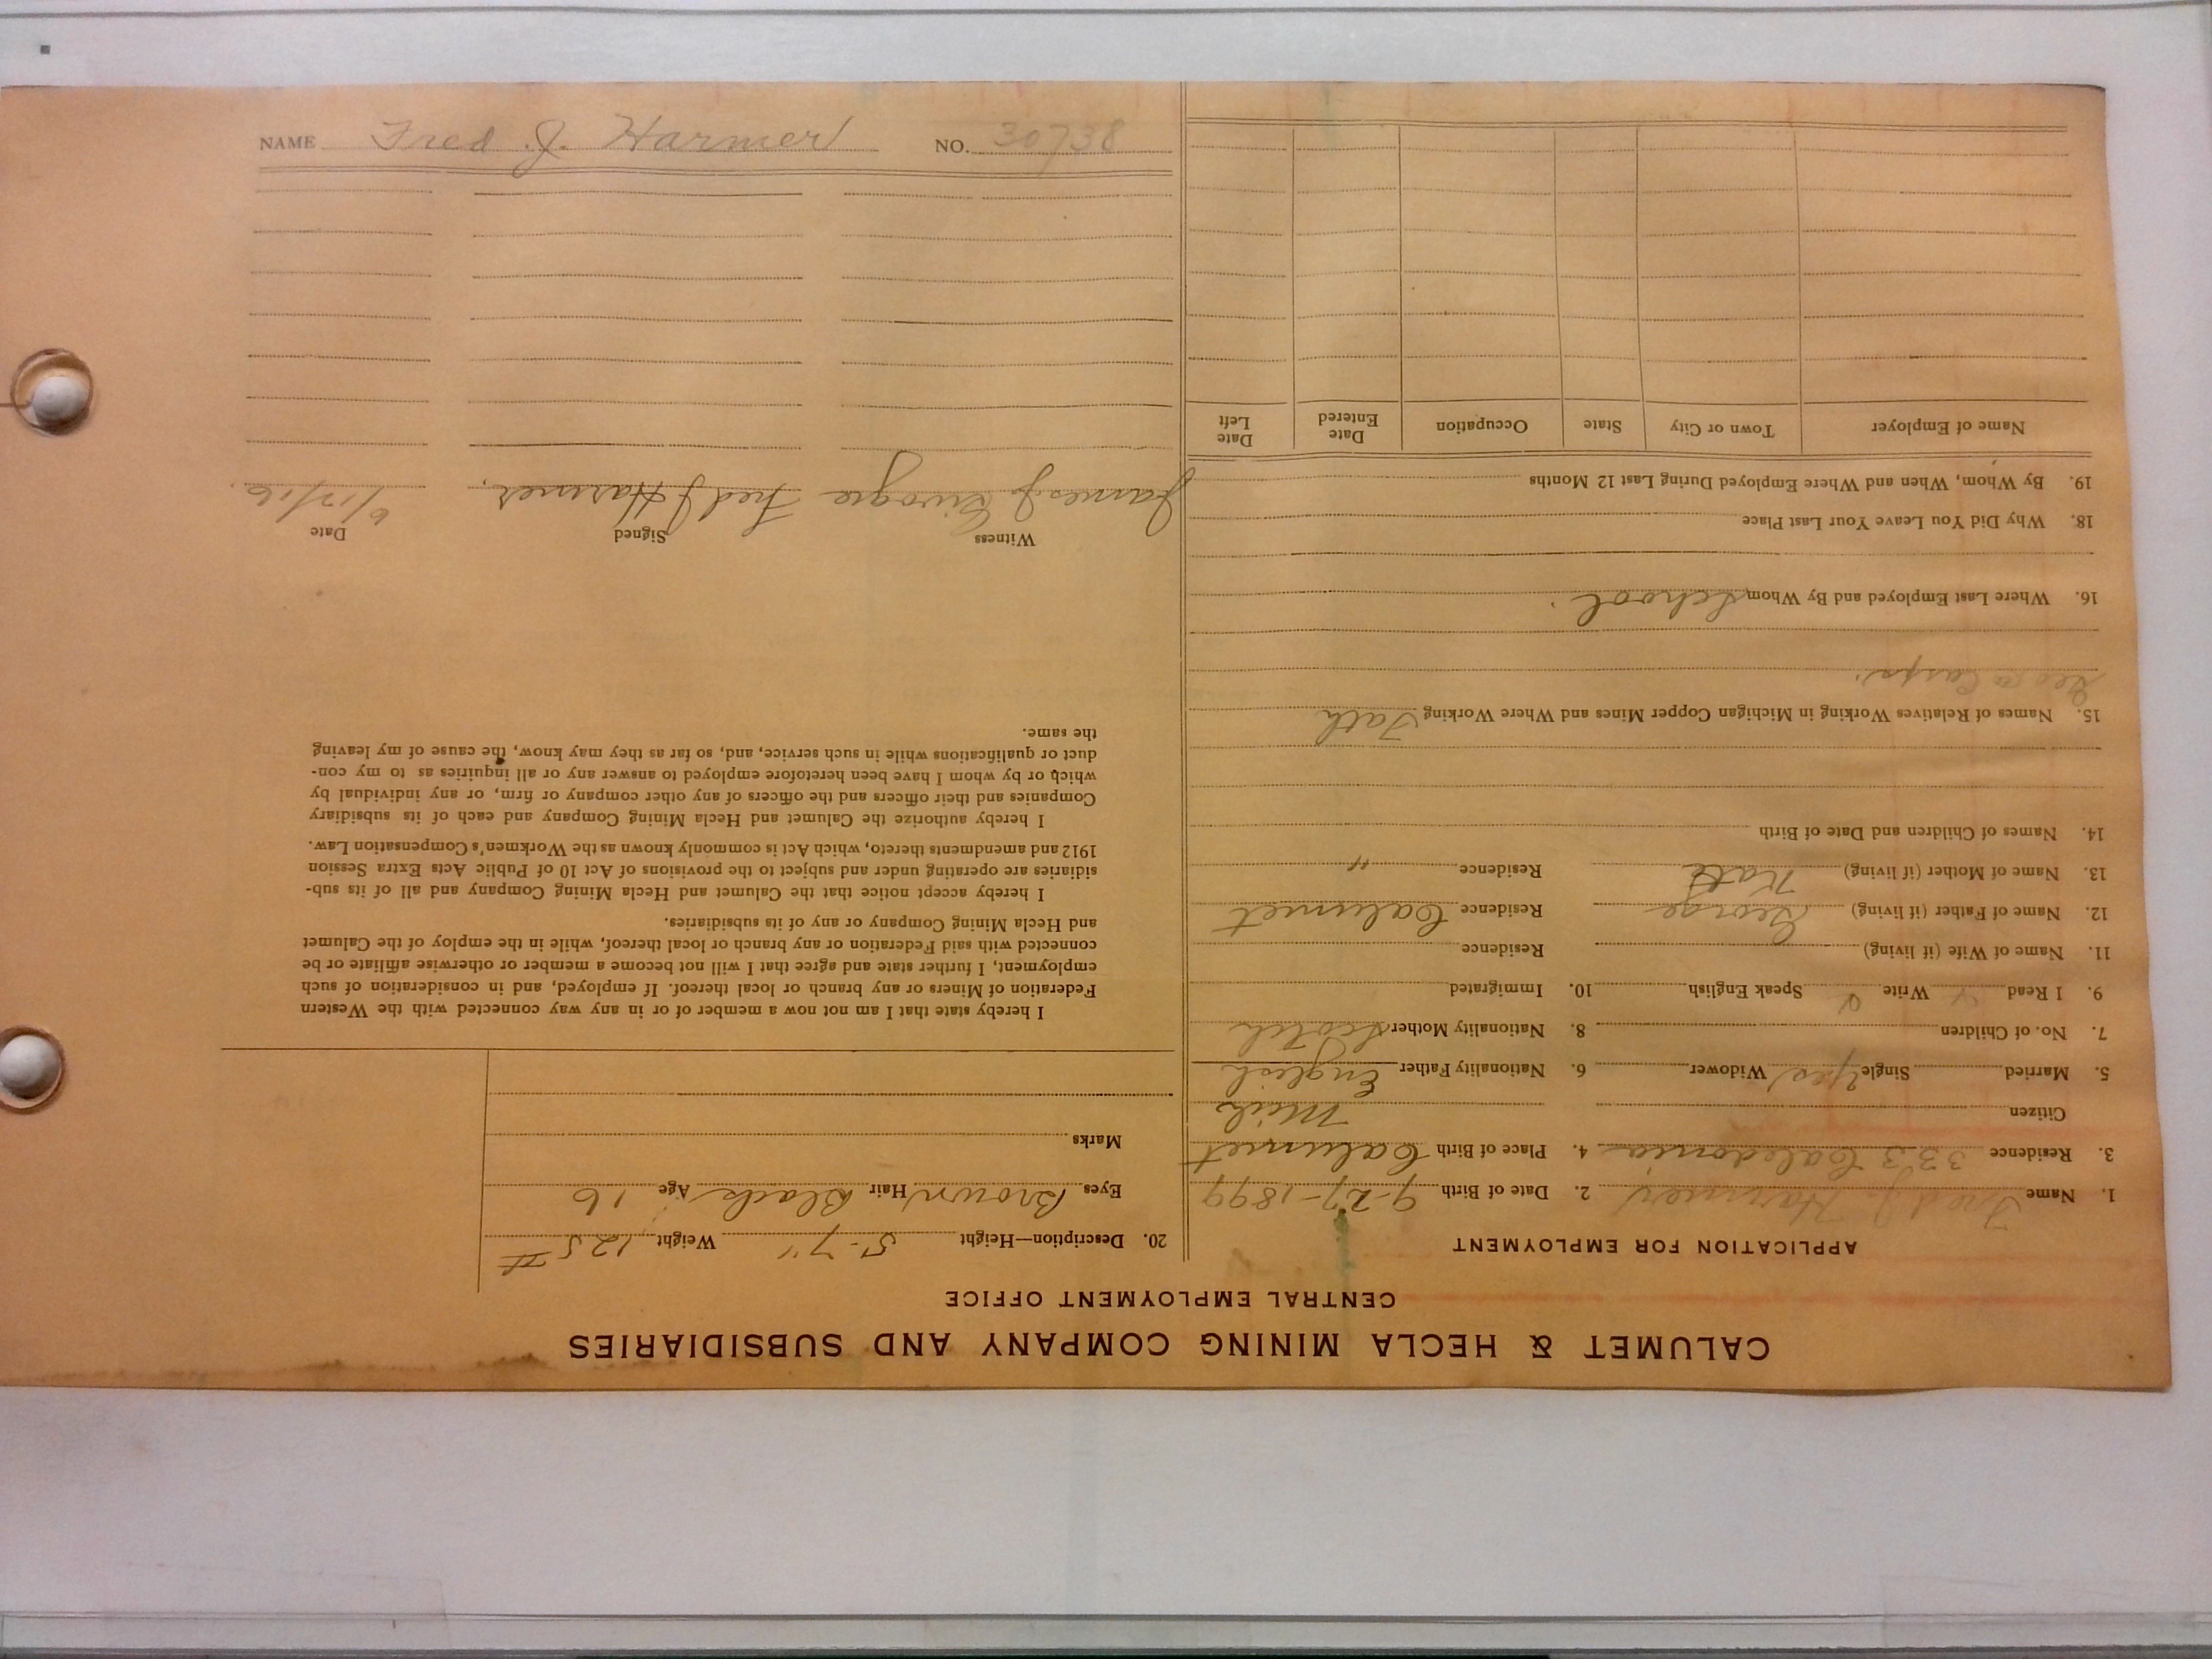 CALUMET & HECLA MINING COMPANY AND SUBSIDIARIES
CENTRAL EMPLOYMENT OFFICE
APPLICATION FOR EMPLOYMENT
1. Name Fred J. Harmer 2. Date of Birth 9-27-1899
3. Residence 333 Caledonia 4. Place of Birth Calumet
Citizen Mich
5. Married Single yes Widower 6. Nationality Father English
7. No. of Children 8. Nationality Mother Scotch
9. I Read Write Speak English 10. Immigrated
11. Name of Wife (if living) Residence
12. Name of Father (if living) George Residence Calumet
13. Name of Mother (if living) Kate Residence "
14. Names of Children and Date of Birth
15. Names of Relatives Working in Michigan Copper Mines and Where Working Fath
16. Where Last Employed and By Whom School.
18. Why Did You Leave Your Last Place
19. By Whom, When and Where Employed During Last 12 Months
Name of Employer Town or City State Occupation Date Entered Date Left
20. Description—Height 5-7" Weight 125 #
Eyes Brown Hair Black Age 16
Marks
I hereby state that I am not now a member of or in any way connected with the Western
Federation of Miners or any branch or local thereof. If employed, and in consideration of such
employment, I further state and agree that I will not become a member or otherwise affiliate or be
connected with said Federation or any branch or local thereof, while in the employ of the Calumet
and Hecla Mining Company or any of its subsidiaries.
I hereby accept notice that the Calumet and Hecla Mining Company and all of its sub-
sidiaries are operating under and subject to the provisions of Act 10 of Public Acts Extra Session
1912 and amendments thereto, which Act is commonly known as the Workmen's Compensation Law.
I hereby authorize the Calumet and Hecla Mining Company and each of its subsidiary
Companies and their officers and the officers of any other company or firm, or any individual by
which or by whom I have been heretofore employed to answer any or all inquiries as to my con-
duct or qualifications while in such service, and, so far as they may know, the cause of my leaving
the same.
Witness Signed Date
James J Fred J Harmer. 6/17/16.
NAME Fred J. Harmer NO. 30738